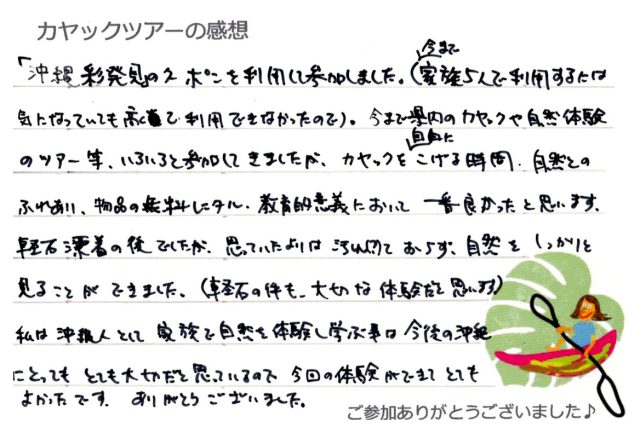 カヤックツアーの感想
「沖縄彩発見のクーポンを利用して参加しました。(今まで家族5人で利用するには
気になっていても高くて利用できなかったので)。今まで県内のカヤックや自然体験
のツアー等、いろいろと参加してきましたが、カヤックを自由にこげる時間、自然との
ふれあい、物品の無料レンタル、教育的意義において一番良かったと思います。
軽石漂着の後でしたが、思っていたよりは汚れておらず、自然をしっかりと
見ることができました。(軽石の件も、大切な体験だと思います)
私は沖縄人として家族で自然を体験し学ぶ事は今後の沖縄
にとってもとても大切だと思っているので今回の体験ができてとても
よかったです。ありがとうございました。
ご参加ありがとうございました♪